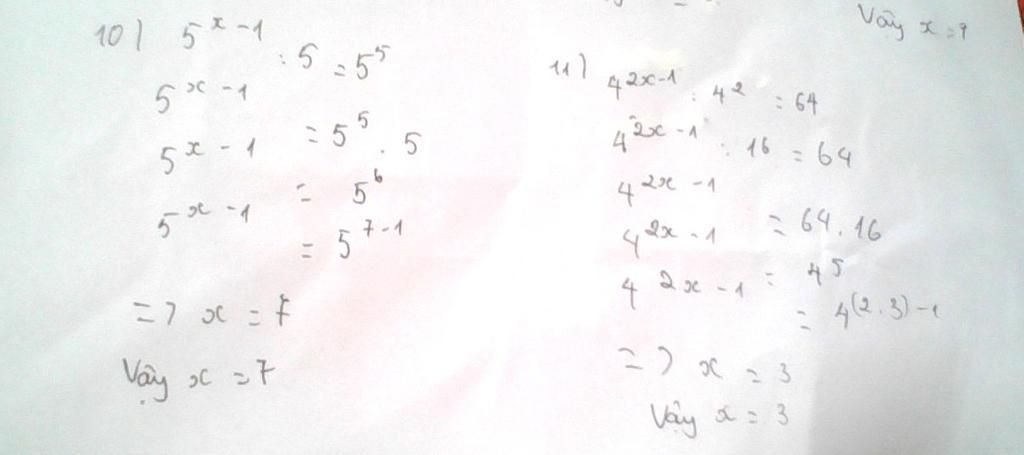 Vậy x = 9
10) 5^{x-1} : 5 = 5^5
5^{x-1} = 5^5 . 5
5^{x-1} = 5^6
5^{x-1} = 5^{7-1}
=> x = 7
Vậy x = 7
11) 4^{2x-1} : 4^2 = 64
4^{2x-1} : 16 = 64
4^{2x-1} = 64 . 16
4^{2x-1} = 4^5
4^{2x-1} = 4^{(2.3)-1}
=> x = 3
Vậy x = 3